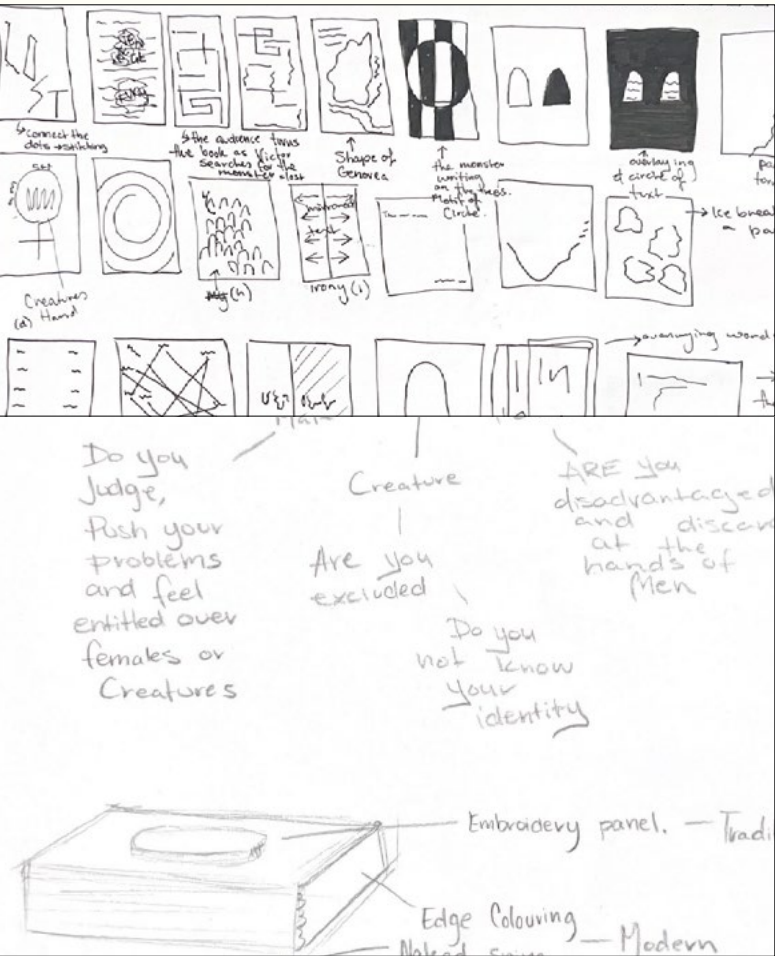 connect the
dots → stitching
the audience turns
the book as Victor
searches for the
monster
Shape of
Genovea
the monster
writing
on the trees.
Motif of
Circle.
overlaying
& circle of
text
→ Ice brea
a pa
Creatures
(a) Hand
(h)
mirrored
text
irony (i)
→ overlaying word
Do you
Judge,
Push your
problems
and feel
entitled over
females or
Creatures
Creature
Are you
excluded
Do you
not know
your
identity
ARE you
disadvantaged
and discar
at the
hands of
Men
Embroidery panel. — Tradi
Edge Colouring
Naked spine — Modern